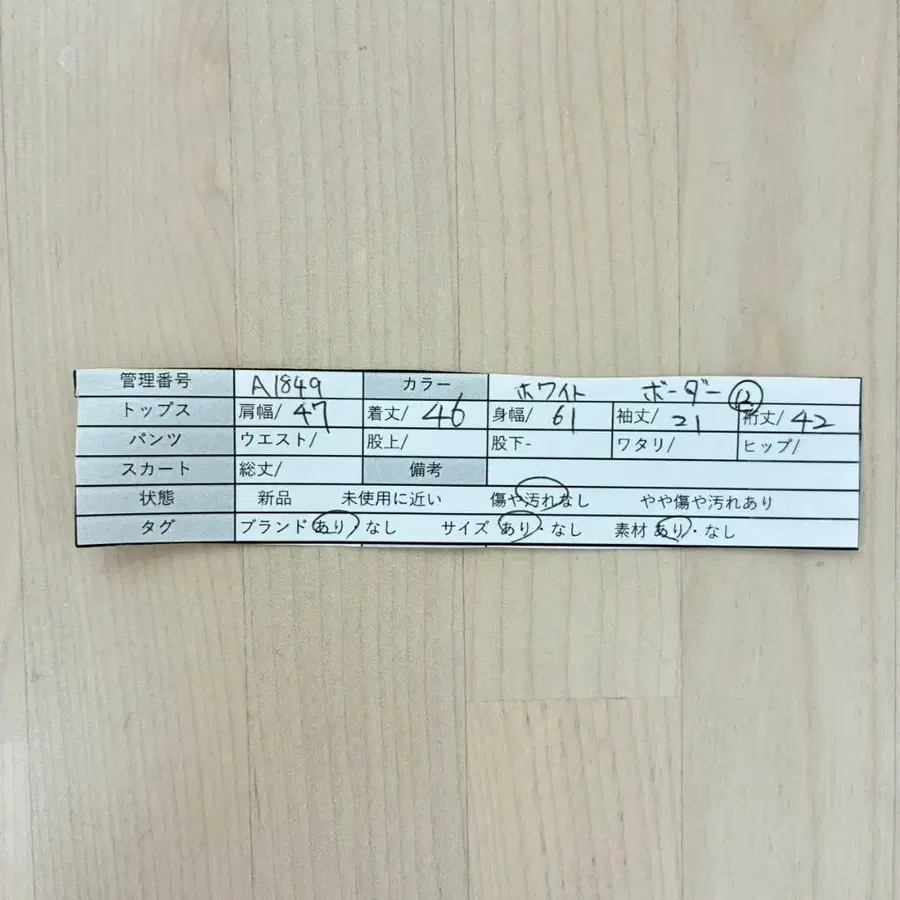 管理番号 A1849 カラー ホワイト ボーダー ⑫
トップス 肩幅/ 47 着丈/ 46 身幅/ 61 袖丈/ 21 裄丈/ 42
パンツ ウエスト/ 股上/ 股下- ワタリ/ ヒップ/
スカート 総丈/ 備考
状態 新品 未使用に近い 傷や汚れなし やや傷や汚れあり
タグ ブランド あり・なし サイズ あり・なし 素材 あり・なし